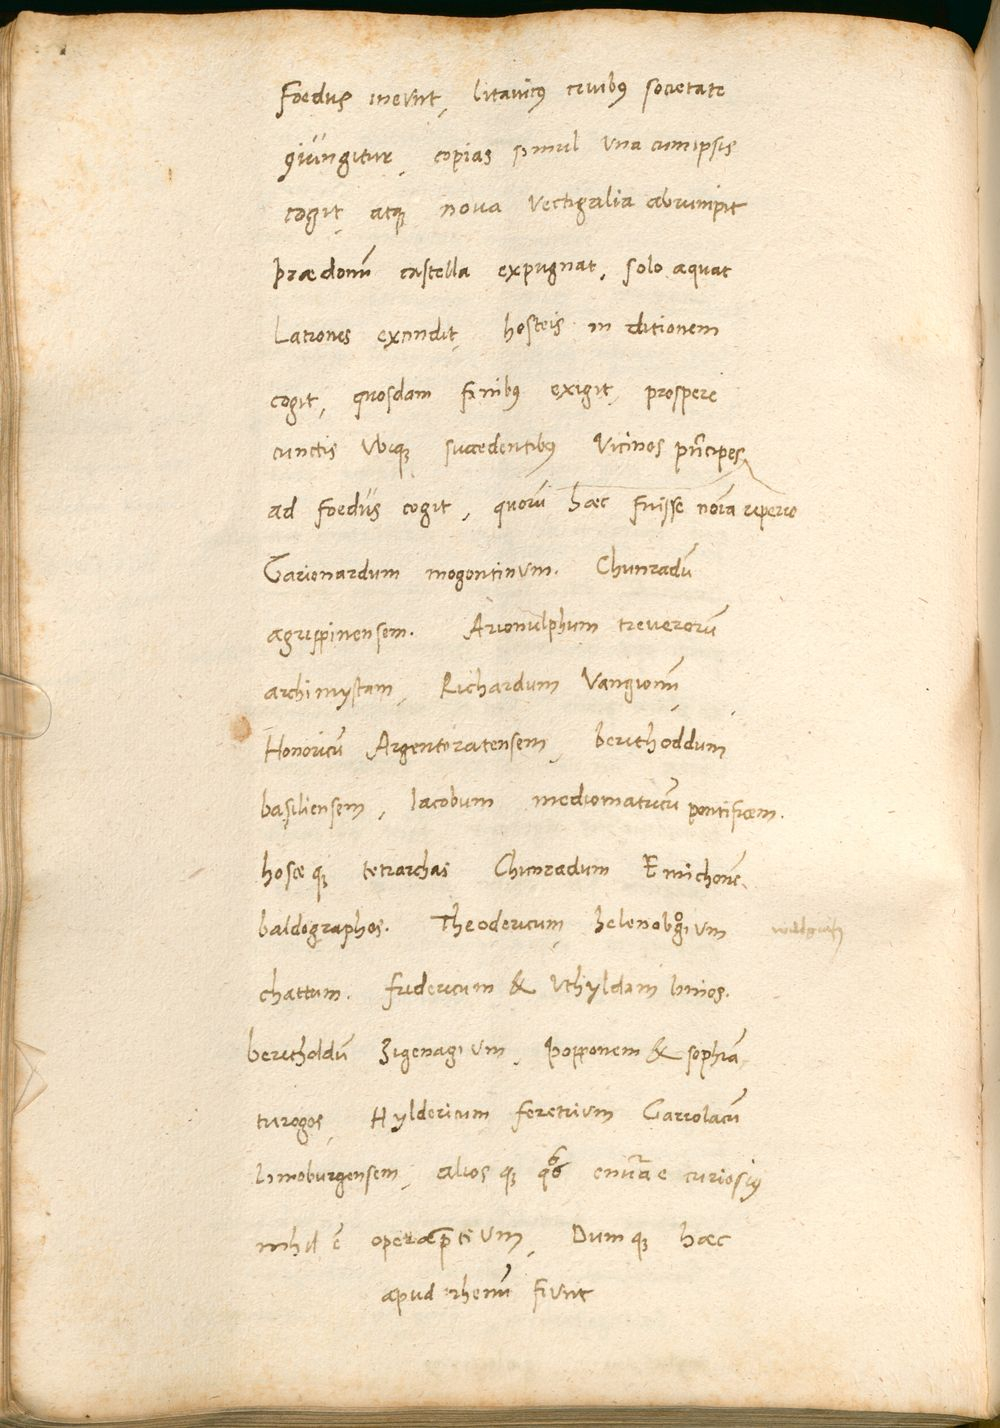 Foedus ineunt, litauicꝰ ciuibꝰ societate
ꝯiungitur, copias simul vna cum ipsis
cogit, atqꝫ noua vectigalia abrumpit
prædonũ castella expugnat, solo æquat
Latrones excindit, hosteis in ditionem
cogit, quosdam finibꝰ exigit, prospere
cunctis vbiqꝫ succedentibꝰ Vicinos pñcipes
ad foedus cogit, quorũ hæc fuisse noĩa reperio
Garionardum mogontinum. Chunradũ
agrippinensem. Arionulphum treuerorũ
archimystam, Richardum Vangionũ,
Honoricũ Argentoratensem, berithoddum
basiliensem, Iacobum mediomatricũ pontificem.
hosceqꝫ tetrarchas Chunradum Emichonẽ,
baldographos. Theodericum, helenobogium
chattum. fridericum & Vthyldam linios.
beritholdũ Zigenagium, popponem & sophiã
turogos, Hyldericum feretrium Garrolacũ
limoburgensem, aliosqꝫ qbꝰ enũrare curiosiꝰ
nihil ẽ operæp̃tium, Dumqꝫ hæc
apud rhenũ fiunt